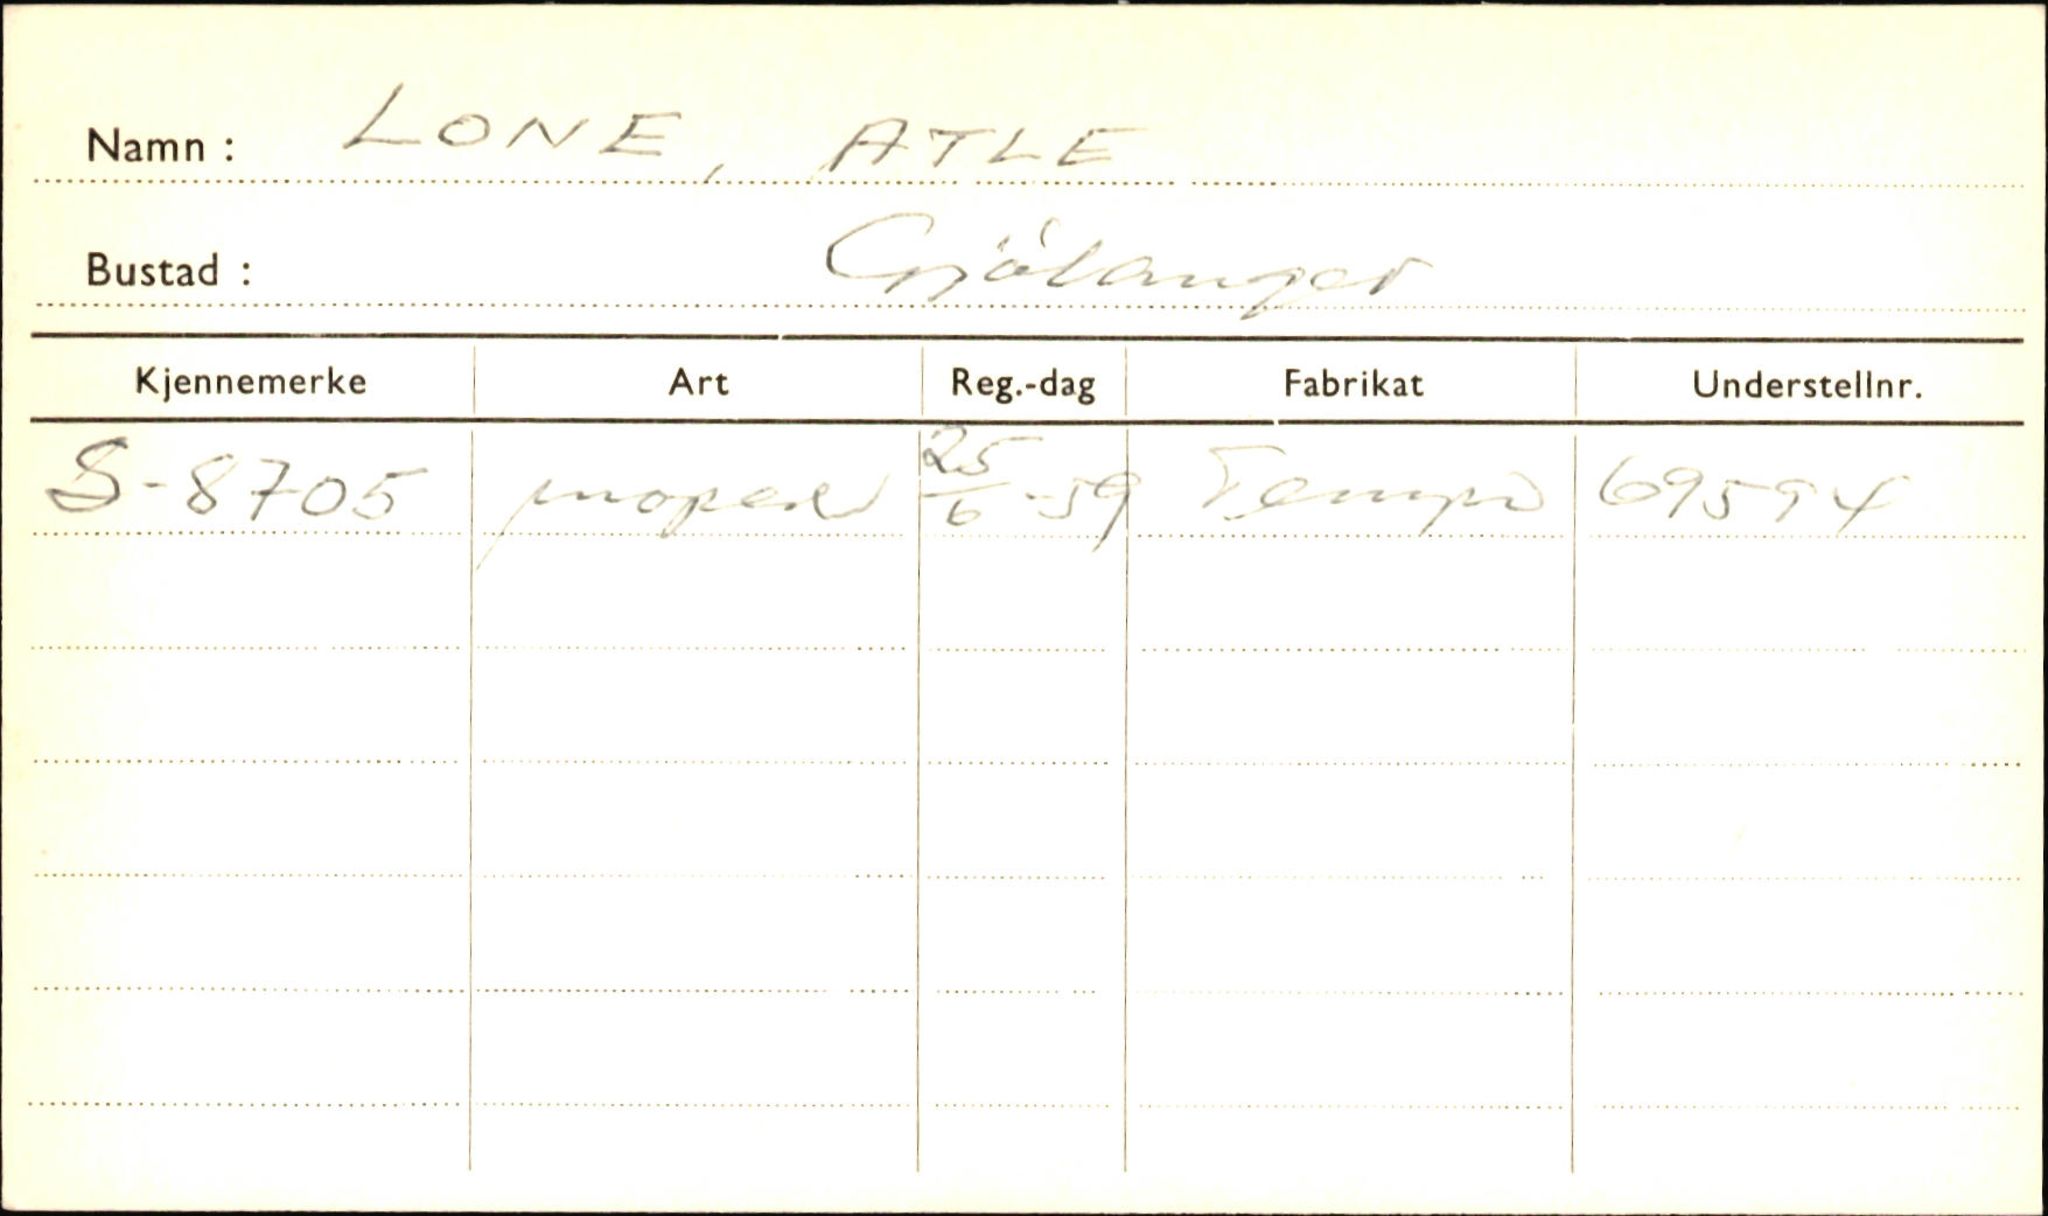 Namn : LONE, ATLE
Bustad : Gjölanger
Kjennemerke Art Reg.-dag Fabrikat Understellnr.
S-8705 moped 25/6-59 Tempo 69594